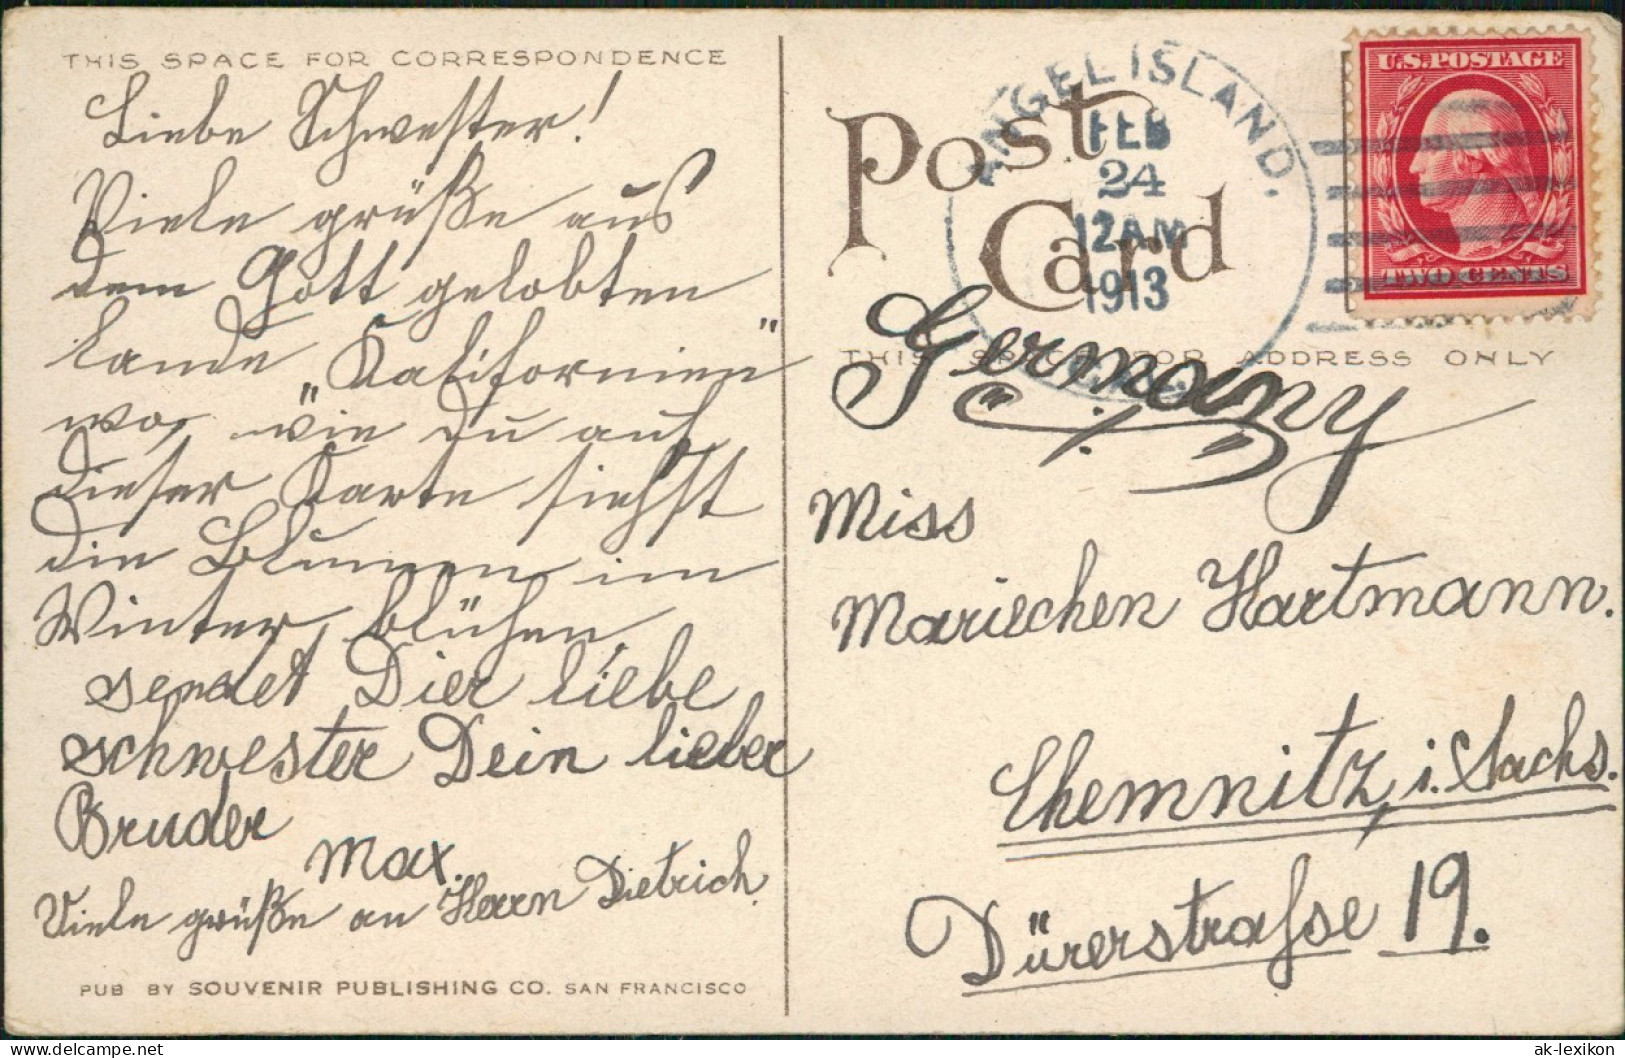 THIS SPACE FOR CORRESPONDENCE
Liebe Schwester!
Viele grüße aus
dem Gott gelobten
Lande „Kalifornien"
wo, wie Du auf
dieser Karte siehst
die Blumen im
Winter blühen,
sendet Dier liebe
schwester Dein lieber
Bruder
Max.
Viele grüße an Herrn Dietrich.
PUB BY SOUVENIR PUBLISHING CO. SAN FRANCISCO
Post Card
ANGEL ISLAND,
FEB
24
12 AM
1913
U.S. POSTAGE
TWO CENTS
THIS SPACE FOR ADDRESS ONLY
Germany
Miss
Mariechen Hartmann.
Chemnitz, i. Sachs.
Dürerstrasse 19.
Copyright (c) www.delcampe.net
ak-lexikon